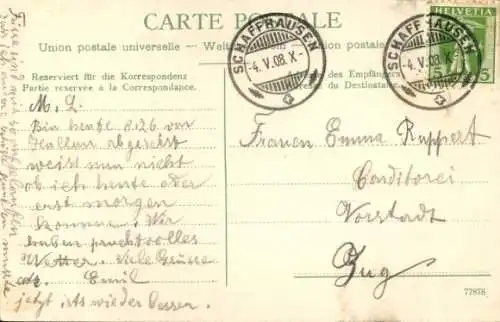 CARTE POSTALE
Union postale universelle — Weltpostverein — Union postale
Reserviert für die Korrespondenz
Partie reservée à la Correspondance.
des Empfängers
du Destinataire
SCHAFFHAUSEN
-4.V.08.X-
SCHAFFHAUSEN
-4.V.08
HELVETIA
5 5
M. L.
Bin heute 8.126. von
Hallau abgereist
weiss nun nicht
ob ich heute oder
erst morgen
komme. Wir
haben prachtvolles
Wetter. Viele Grüsse
Emil
jetzt ists wieder besser.
Frauen Emma Ruppert
Conditorei
Vorstadt
Zug
77878